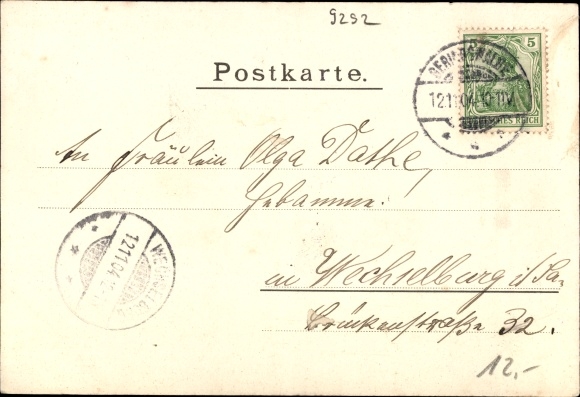 9292
Postkarte.
5
12.11.04.10-11V.
REICH
An Fräulein Olga Dathe,
Hebamme.
in Wechselburg i/Sa.
Brückenstraße 32.
12.11.04
12.-